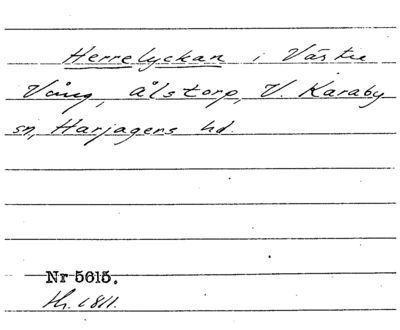 Herrelyckan i Västre
Vång, Ålstorp, V. Karaby
sn, Harjagers hd.
Nr 5615.
Hr. 1811.